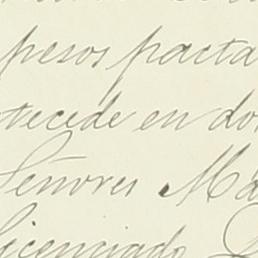 pesos pacta
tecede en do
Señores Ma
licenciado